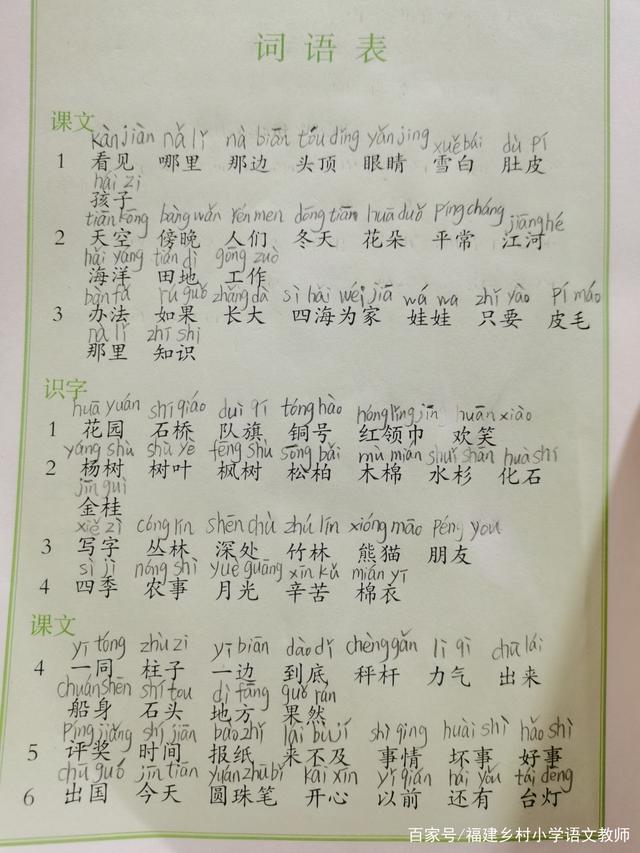 词语表
课文
kàn jiàn nǎ lǐ nà biān tóu dǐng yǎn jing xuě bái dù pí
1 看见 哪里 那边 头顶 眼睛 雪白 肚皮
hái zi
孩子
tiān kōng bàng wǎn rén men dōng tiān huā duǒ píng cháng jiāng hé
2 天空 傍晚 人们 冬天 花朵 平常 江河
hǎi yáng tián dì gōng zuò
海洋 田地 工作
bàn fǎ rú guǒ zhǎng dà sì hǎi wéi jiā wá wa zhǐ yào pí máo
3 办法 如果 长大 四海为家 娃娃 只要 皮毛
nà lǐ zhī shi
那里 知识
识字
huā yuán shí qiáo duì qí tóng hào hóng lǐng jīn huān xiào
1 花园 石桥 队旗 铜号 红领巾 欢笑
yáng shù shù yè fēng shù sōng bǎi mù mián shuǐ shān huà shí
2 杨树 树叶 枫树 松柏 木棉 水杉 化石
jīn guì
金桂
xiě zì cóng lín shēn chù zhú lín xióng māo péng you
3 写字 丛林 深处 竹林 熊猫 朋友
sì jì nóng shì yuè guāng xīn kǔ mián yī
4 四季 农事 月光 辛苦 棉衣
课文
yī tóng zhù zi yī biān dào dǐ chèng gǎn lì qì chū lái
4 一同 柱子 一边 到底 秤杆 力气 出来
chuán shēn shí tou dì fāng guǒ rán
船身 石头 地方 果然
píng jiǎng shí jiān bào zhǐ lái bu jí shì qing huài shì hǎo shì
5 评奖 时间 报纸 来不及 事情 坏事 好事
chū guó jīn tiān yuán zhū bǐ kāi xīn yǐ qián hái yǒu tái dēng
6 出国 今天 圆珠笔 开心 以前 还有 台灯
百家号/福建乡村小学语文教师